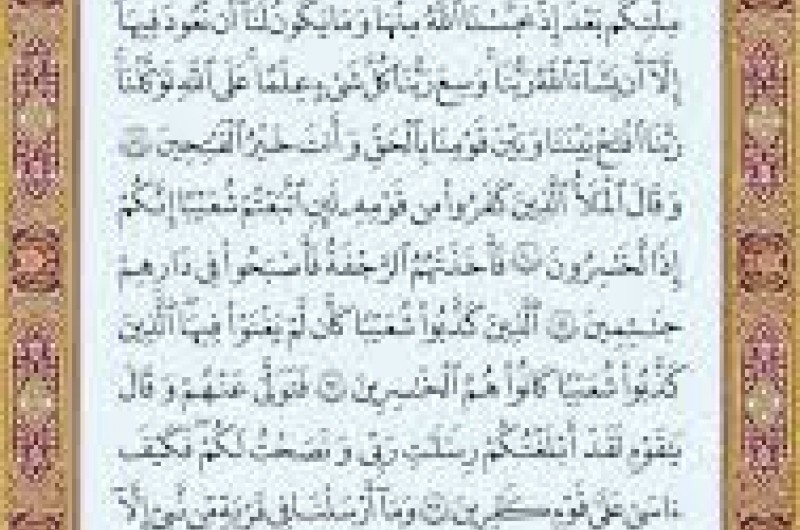 مِلَّتِكُم بَعْدَ إِذْ نَجَّىٰنَا ٱللَّهُ مِنْهَا وَمَا يَكُونُ لَنَآ أَن نَّعُودَ فِيهَآ
إِلَّآ أَن يَشَآءَ ٱللَّهُ رَبُّنَا وَسِعَ رَبُّنَا كُلَّ شَىْءٍ عِلْمًا عَلَى ٱللَّهِ تَوَكَّلْنَا
رَبَّنَا ٱفْتَحْ بَيْنَنَا وَبَيْنَ قَوْمِنَا بِٱلْحَقِّ وَأَنتَ خَيْرُ ٱلْفَٰتِحِينَ
وَقَالَ ٱلْمَلَأُ ٱلَّذِينَ كَفَرُوا۟ مِن قَوْمِهِۦ لَئِنِ ٱتَّبَعْتُمْ شُعَيْبًا إِنَّكُمْ
إِذًا لَّخَٰسِرُونَ فَأَخَذَتْهُمُ ٱلرَّجْفَةُ فَأَصْبَحُوا۟ فِى دَارِهِمْ
جَٰثِمِينَ ٱلَّذِينَ كَذَّبُوا۟ شُعَيْبًا كَأَن لَّمْ يَغْنَوْا۟ فِيهَا ٱلَّذِينَ
كَذَّبُوا۟ شُعَيْبًا كَانُوا۟ هُمُ ٱلْخَٰسِرِينَ فَتَوَلَّىٰ عَنْهُمْ وَقَالَ
يَٰقَوْمِ لَقَدْ أَبْلَغْتُكُمْ رِسَٰلَٰتِ رَبِّى وَنَصَحْتُ لَكُمْ فَكَيْفَ
ءَاسَىٰ عَلَىٰ قَوْمٍ كَٰفِرِينَ وَمَآ أَرْسَلْنَا فِى قَرْيَةٍ مِّن نَّبِىٍّ إِلَّآ